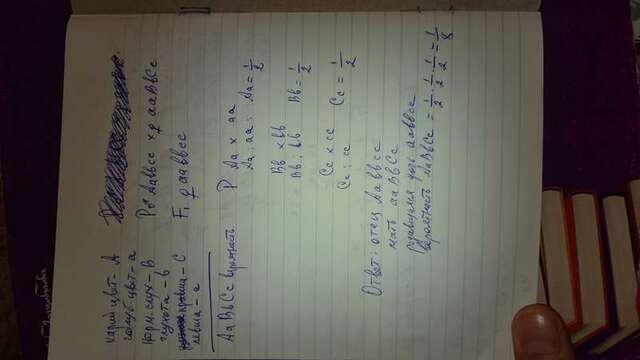 карий цвет - A
голуб цвет - a
норм. слух - B
глухота - b
правша - C
левша - c
P ♂ Aabbcc x ♀ aaBbCc
F₁ ♀ aabbcc
AaBbCc вероятность.
P Aa x aa
Aa : aa : Aa = 1/2
Bb x bb
Bb : bb Bb = 1/2
Cc x cc
Cc : cc Cc = 1/2
Ответ: отец Aabbcc
мать aaBbCc
Родившаяся дочь aabbcc
вероятность AaBbCc = 1/2 · 1/2 · 1/2 = 1/8